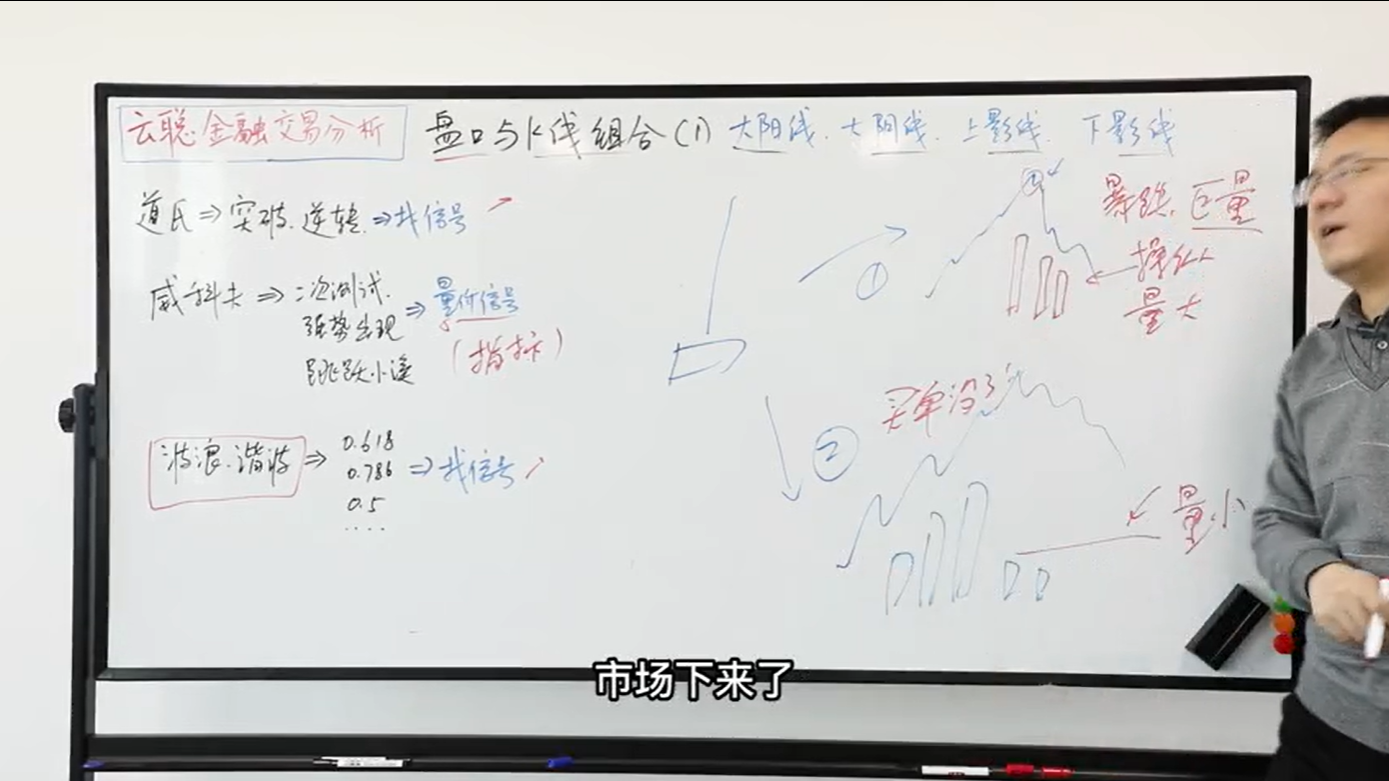 云聪金融交易分析
盘口与K线组合(1) 大阳线、大阴线、上影线、下影线
道氏⇒突破.逆转⇒找信号
威科夫⇒二次测试.
强势出现
跳跃小溪
⇒量价信号
(指标)
波浪.谐波⇒
0.618
0.786
0.5
....
⇒找信号
①
暴跌.巨量
操纵
量大
②
买单没了
量小
市场下来了